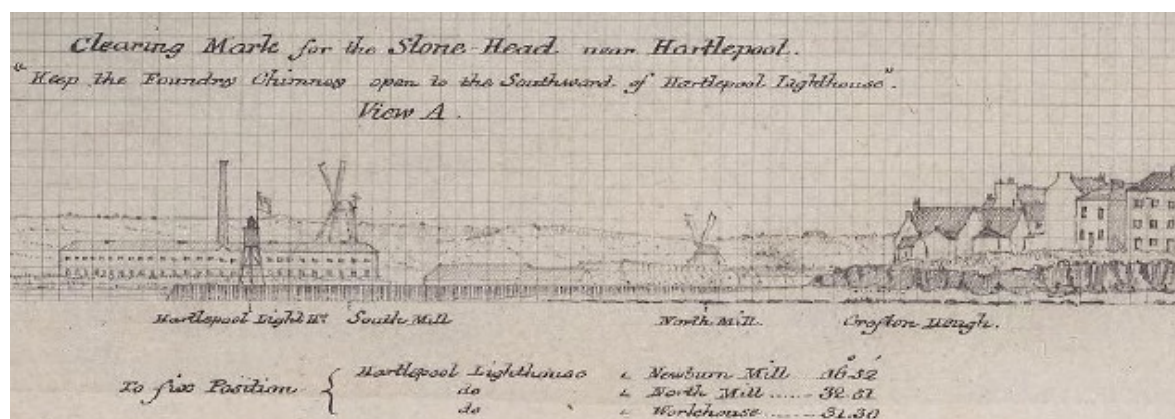 Clearing Mark for the Stone Head near Hartlepool.
"Keep the Foundry Chimney open to the Southward of Hartlepool Lighthouse".
View A.
Hartlepool Light Hᵒ. South Mill North Mill. Crofton Heugh.
To fix Position { Hartlepool Lighthouse ∠ Newburn Mill 36.52
do ∠ North Mill ...... 32.51
do ∠ Workhouse ...... 31.30